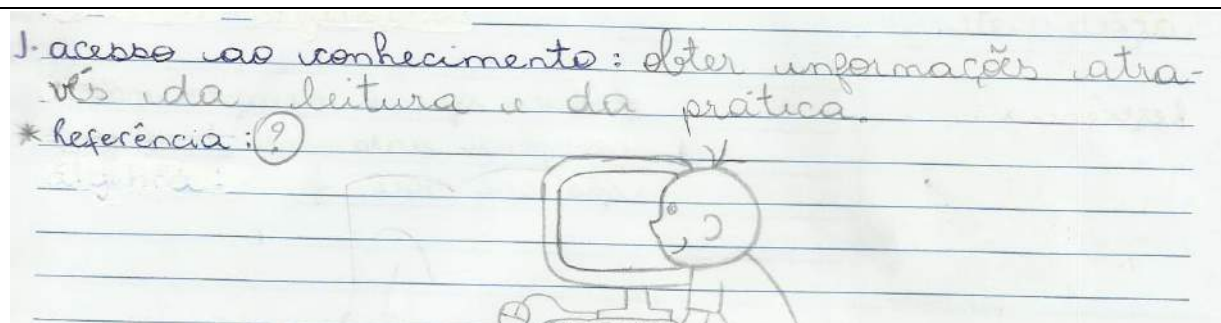 1. acesso ao conhecimento: obter informações atra-
vés da leitura e da prática.
* Referência: ?